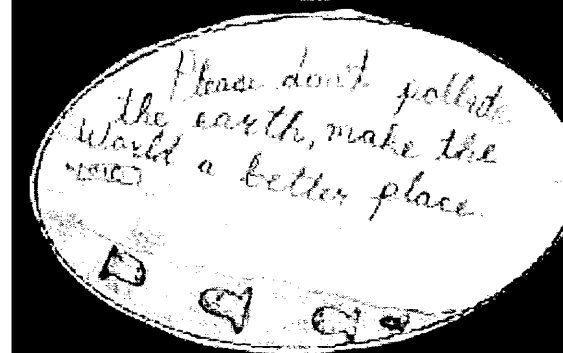 Please don't pollute
the earth, make the
World a better place.